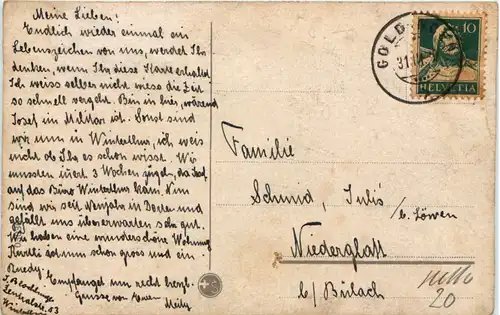 Meine Lieben!
Endlich wieder einmal ein
Lebenszeichen von uns, werdet Ihr
denken, wenn Ihr diese Karte erhaltet.
Ich weiss selber nicht wieso die Zeit
so schnell vergeht. Bin in hier, während
Josef im Militär ist. Sonst sind
wir nun in Winterthur, ich weis
nicht ob Ihr es schon wisst. Wir
mussten innert 3 Wochen zügeln, da Josef
auf das Büro Winterthur kam. Nun
sind wir seit Neujahr in
gefällt uns überwarten sehr gut.
Wir haben eine wunderschöne Wohnung
ist schon nun schon gross und ein
Ruedy. Empfanget nun recht herzl.
Grüsse von Euer
Meily
Winterthur
GOLD
31.
10
HELVETIA
Familie
Schmid, Julis
b. Löwen
Niederglatt
b/ Bülach
netto
20